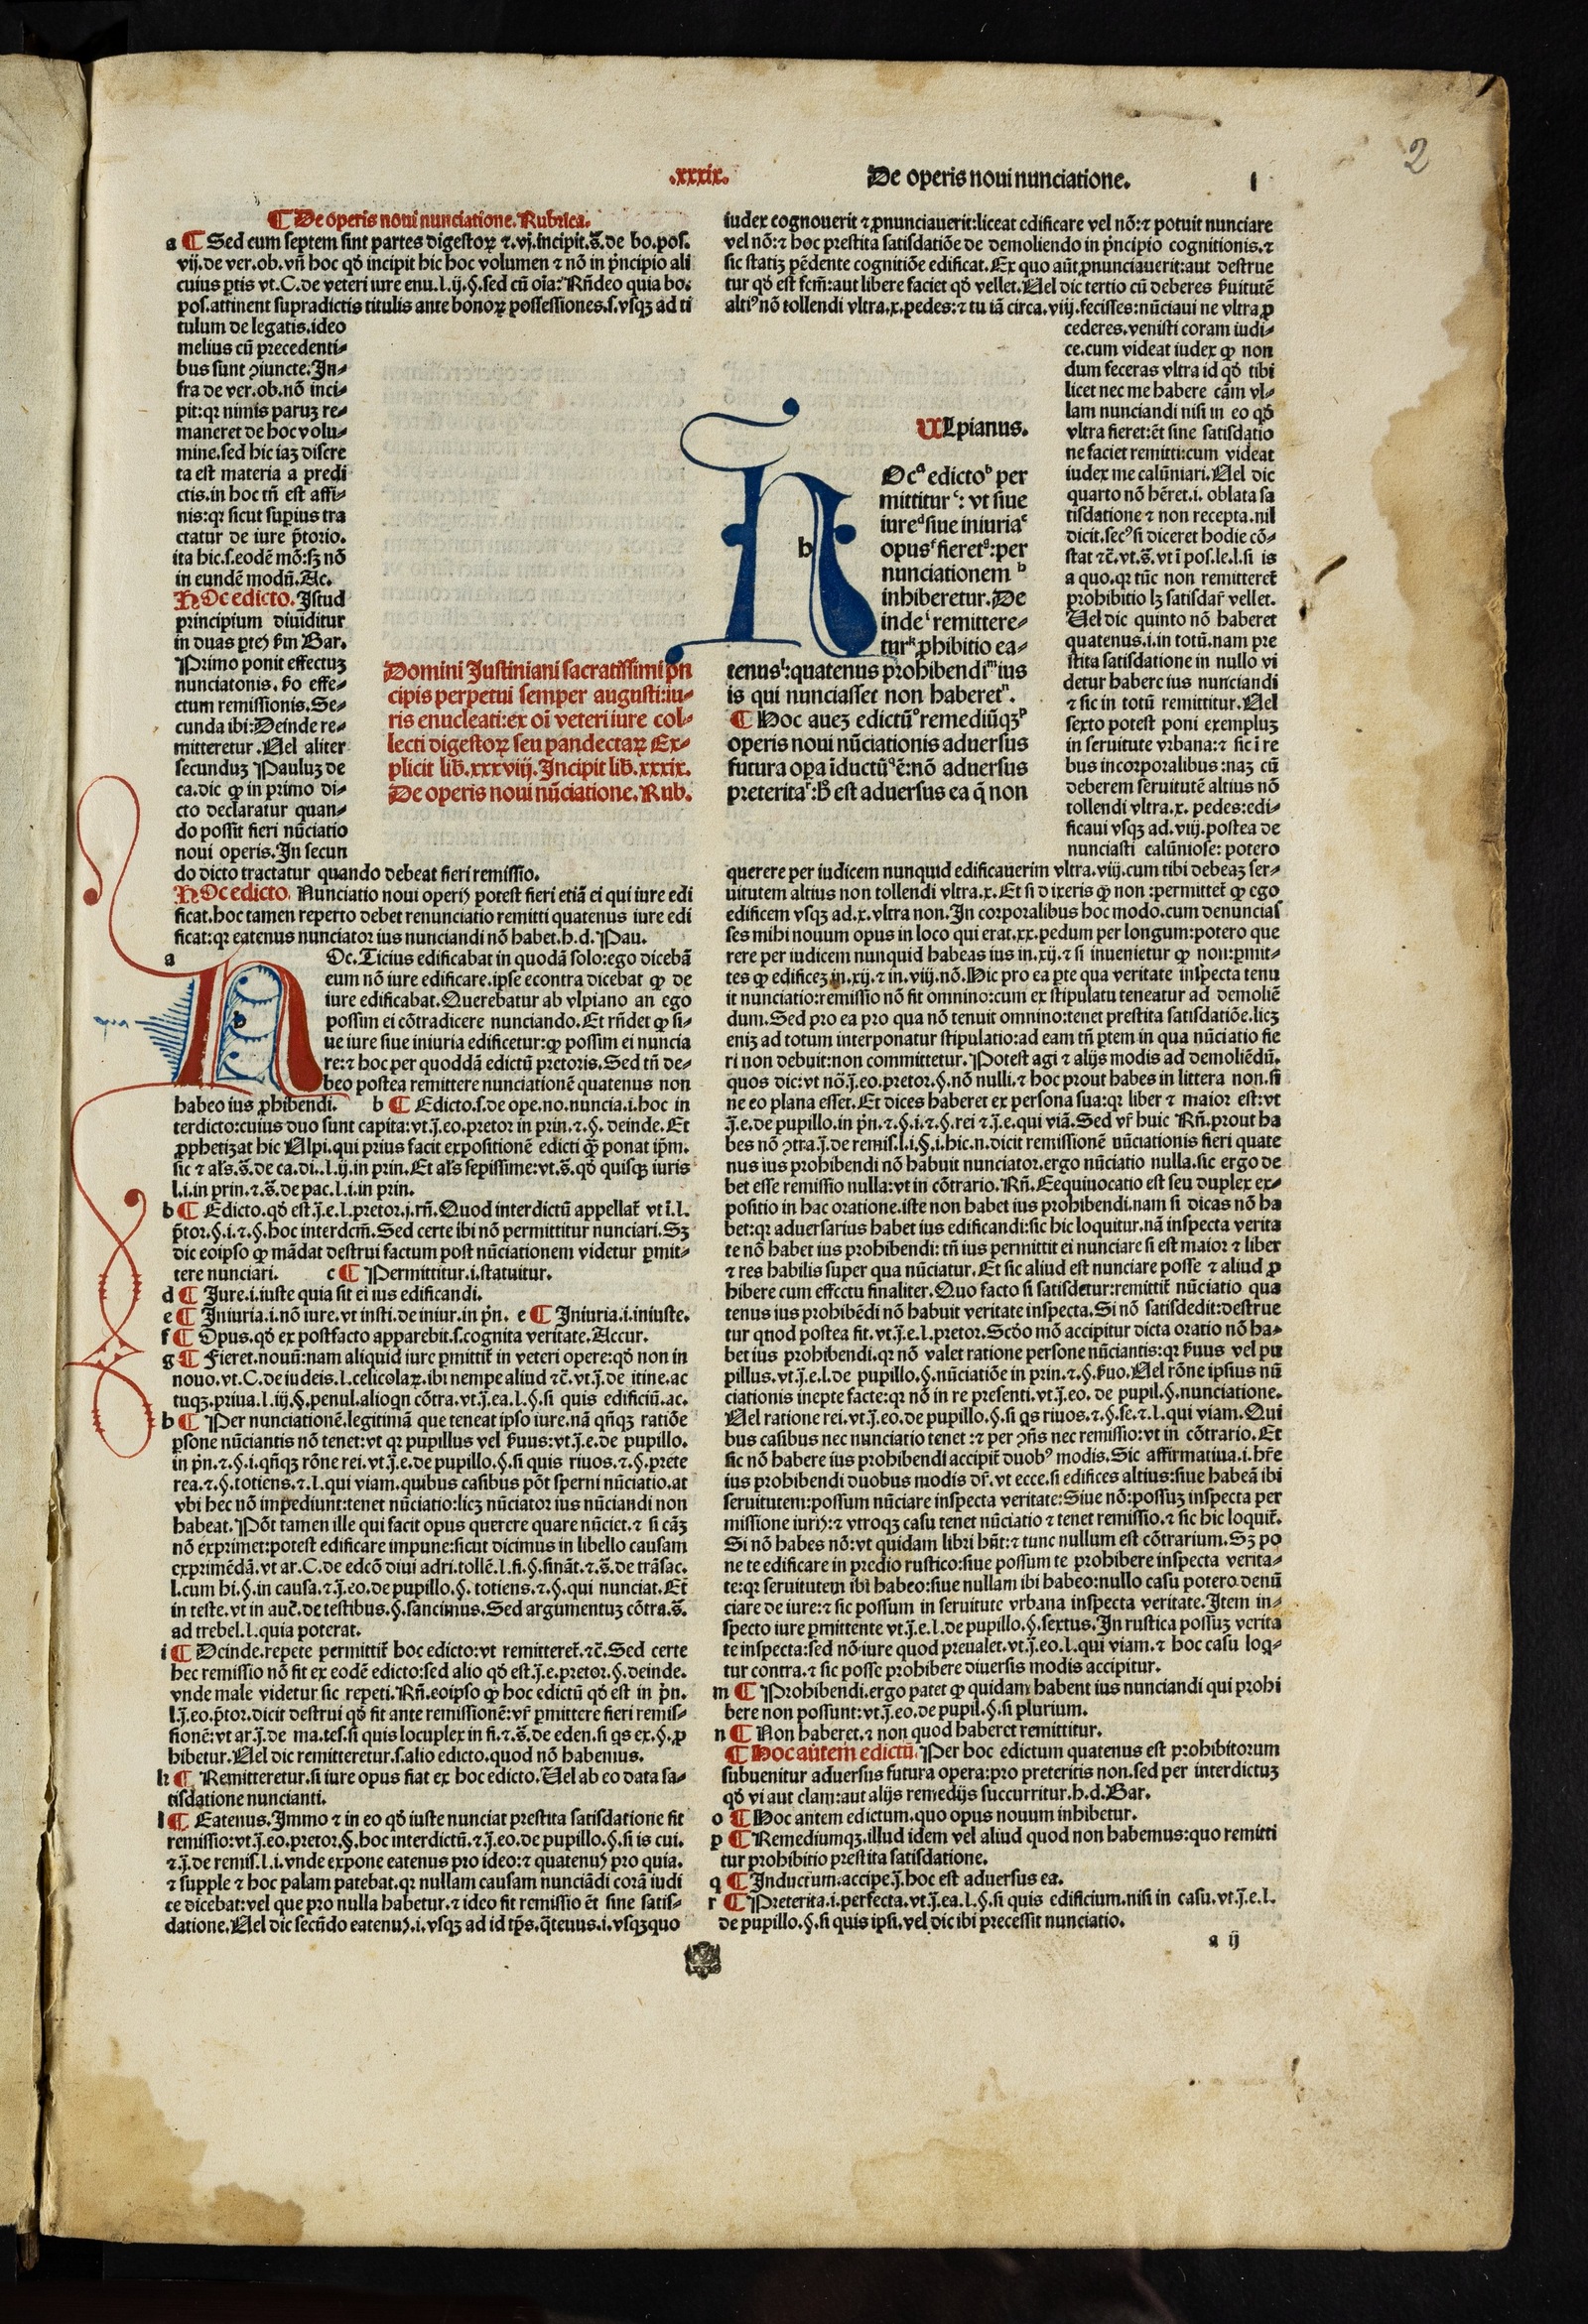 .xxxix.
De operis noui nunciatione.
1
2
¶ De operis noui nunciatione. Rubrica.
a ¶ Sed cum septem sint partes digestoꝝ ⁊.vj.incipit.s̄.de bo.pos.
vij.de ver.ob.vn̄ hoc qđ incipit hic hoc volumen ⁊ nō in p̄ncipio ali
cuius ꝑtis vt.C.de veteri iure enu.l.ij.§.sed cū oīa: Rn̄deo quia bo.
pos.attinent supradictis titulis ante bonoꝝ possessiones.s.vsqꝫ ad ti
tulum de legatis.ideo
melius cū precedenti⸗
bus sunt ꝯiuncte. In⸗
fra de ver.ob.nō inci⸗
pit:qꝛ nimis paruꝫ re⸗
maneret de hoc volu⸗
mine.sed hic iaꝫ discre
ta est materia a predi
ctis.in hoc tn̄ est affi⸗
nis:qꝛ sicut suꝑius tra
ctatur de iure p̄torio.
ita hic.s.eodē mō:sꝫ nō
in eundē modū. Ac.
HOc edicto. Istud
principium diuiditur
in duas ꝑteꝭ ẜm Bar.
Primo ponit effectuꝫ
nunciatonis. ẜo effe⸗
ctum remissionis. Se⸗
cunda ibi: Deinde re⸗
mitteretur. Uel aliter
secunduꝫ Pauluꝫ de
ca.dic ꝙ in primo di⸗
cto declaratur quan⸗
do possit fieri nūciatio
noui operis. In secun
do dicto tractatur quando debeat fieri remissio.
HOc edicto. Nunciatio noui operiꝭ potest fieri etiā ei qui iure edi
ficat.hoc tamen reperto debet renunciatio remitti quatenus iure edi
ficat:qꝛ eatenus nunciator ius nunciandi nō habet.h.d. Pau.
a
HOc. Ticius edificabat in quodā solo:ego dicebā
eum nō iure edificare.ipse econtra dicebat ꝙ de
iure edificabat. Querebatur ab vlpiano an ego
possim ei cōtradicere nunciando. Et rn̄det ꝙ si⸗
ue iure siue iniuria edificetur:ꝙ possim ei nuncia
re:⁊ hoc per quoddā edictū pretoris. Sed tn̄ de⸗
beo postea remittere nunciationē quatenus non
habeo ius ꝓhibendi. b ¶ Edicto.s.de ope.no.nuncia.i.hoc in
terdicto:cuius duo sunt capita:vt.j̄.eo.pretor in prin.⁊.§. deinde. Et
ꝓphetizat hic Ulpi.qui prius facit expositionē edicti ꝙ̄ ponat ip̄m.
sic ⁊ als̄.s̄.de ca.di..l.ij.in prin. Et als̄ sepissime:vt.s̄.qđ quisqꝫ iuris
l.i.in prin.⁊.s̄.de pac.l.i.in prin.
b ¶ Edicto.qđ est.j̄.e.l.pretor.j.rn̄. Quod interdictū appellat̄ vt ī.l.
p̄tor.§.i.⁊.§.hoc interdcm̄. Sed certe ibi nō permittitur nunciari. Sꝫ
dic eoipso ꝙ mādat destrui factum post nūciationem videtur ꝑmit⸗
tere nunciari. c ¶ Permittitur.i.statuitur.
d ¶ Jure.i.iuste quia sit ei ius edificandi.
e ¶ Iniuria.i.nō iure.vt insti.de iniur.in p̄n. e ¶ Iniuria.i.iniuste.
f ¶ Opus.qđ ex postfacto apparebit.s.cognita veritate. Accur.
g ¶ Fieret.nouū:nam aliquid iure ꝑmittit̄ in veteri opere:qđ non in
nouo.vt.C.de iudeis.l.celicolaꝝ.ibi nempe aliud ⁊c̄.vt.j̄.de itine.ac
tuqꝫ.priua.l.iij.§.penul.alioqn cōtra.vt.j̄.ea.l.§.si quis edificiū.ac.
h ¶ Per nunciationē.legitimā que teneat ipso iure.nā qn̄qꝫ ratiōe
ꝑsone nūciantis nō tenet:vt qꝛ pupillus vel ẜuus:vt.j̄.e.de pupillo.
in p̄n.⁊.§.i.qn̄qꝫ rōne rei.vt.j̄.e.de pupillo.§.si quis riuos.⁊.§.prete
rea.⁊.§.totiens.⁊.l.qui viam.quibus casibus pōt sperni nūciatio.at
vbi hec nō impediunt:tenet nūciatio:licꝫ nūciator ius nūciandi non
habeat. Pōt tamen ille qui facit opus querere quare nūciet.⁊ si cāꝫ
nō exprimet:potest edificare impune:sicut dicimus in libello causam
exprimēdā.vt ar.C.de edcō diui adri.tollē.l.fi.§.fināt.⁊.s̄.de trāsac.
l.cum hi.§.in causa.⁊.j̄.eo.de pupillo.§. totiens.⁊.§.qui nunciat. Et
in teste.vt in auc̄.de testibus.§.sancimus. Sed argumentuꝫ cōtra.s̄.
ad trebel.l.quia poterat.
i ¶ Deinde.repete permittit̄ hoc edicto:vt remitteret̄.⁊c̄. Sed certe
hec remissio nō fit ex eodē edicto:sed alio qđ est.j̄.e.pretor.§.deinde.
vnde male videtur sic repeti. Rn̄.eoipso ꝙ hoc edictū qđ est in p̄n.
l.j̄.eo.p̄tor.dicit destrui qđ fit ante remissionē:vr̄ ꝑmittere fieri remis⸗
sionē:vt ar.j̄.de ma.tes.si quis locuplex in fi.⁊.s̄.de eden.si qs ex.§.ꝓ
hibetur. Uel dic remitteretur.s.alio edicto.quod nō habemus.
k ¶ Remitteretur.si iure opus fiat ex hoc edicto. Uel ab eo data sa⸗
tisdatione nuncianti.
l ¶ Eatenus. Immo ⁊ in eo qđ iuste nunciat prestita satisdatione fit
remissio:vt.j̄.eo.pretor.§.hoc interdictū.⁊.j̄.eo.de pupillo.§.si is cui.
⁊.j̄.de remis.l.i.vnde expone eatenus pro ideo:⁊ quatenuꝭ pro quia.
⁊ supple ⁊ hoc palam patebat.qꝛ nullam causam nunciādi corā iudi
ce dicebat:vel que pro nulla habetur.⁊ ideo fit remissio ēt sine satis⸗
datione. Uel dic secūdo eatenuꝭ.i.vsqꝫ ad id tp̄s. q̄tenus.i.vsqꝫquo
Domini Iustiniani sacratissimi p̄n
cipis perpetui semper augusti:iu⸗
ris enucleati:ex oī veteri iure col⸗
lecti digestoꝝ seu pandectaꝝ Ex⸗
plicit lib̄.xxxviij. Incipit lib̄.xxxix.
De operis noui nūciatione. Rub.
ULpianus.
h
HOcᵃ edictoᵇ per
mitturᶜ: vt siue
iureᵈ siue iniuriaᵉ
opusᶠ fieretᵍ:per
nunciationem ʰ
inhiberetur. De
indeⁱ remittere⸗
turᵏ ꝓhibitio ea⸗
tenusˡ:quatenus prohibendiᵐ ius
is qui nunciasset non haberetⁿ.
¶ Hoc auteꝫ edictūᵒ remediūqꝫᵖ
operis noui nūciationis aduersus
futura oꝑa īductū ē:nō aduersus
preteritaʳ:h̄ est aduersus ea q̄ non
iudex cognouerit ⁊ ꝓnunciauerit:liceat edificare vel nō:⁊ potuit nunciare
vel nō:⁊ hoc prestita satisdatiōe de demoliendo in p̄ncipio cognitionis.⁊
sic statiꝫ pēdente cognitiōe edificat. Ex quo aūt ꝓnunciauerit:aut destrue
tur qđ est fcm̄:aut libere faciet qđ vellet. Uel dic tertio cū deberes ẜuitutē
altiꝰ nō tollendi vltra.x.pedes:⁊ tu iā circa.viij.fecisses:nūciaui ne vltra ꝓ
cederes.venisti coram iudi⸗
ce.cum videat iudex ꝙ non
dum feceras vltra id qđ tibi
licet nec me habere cām vl⸗
lam nunciandi nisi in eo qđ
vltra fieret:ēt sine satisdatio
ne faciet remitti:cum videat
iudex me calūniari. Uel dic
quarto nō hēret.i. oblata sa
tisdatione ⁊ non recepta.nil
dicit.secꝰ si diceret hodie cō⸗
stat ⁊c̄.vt.s̄.vt ī pos.le.l.si is
a quo.qꝛ tūc non remitteret̄
prohibitio lꝫ satisdar̄ vellet.
Uel dic quinto nō haberet
quatenus.i.in totū.nam pre
stita satisdatione in nullo vi
detur habere ius nunciandi
⁊ sic in totū remittitur. Uel
sexto potest poni exempluꝫ
in seruitute vrbana:⁊ sic ī re
bus incorporalibus:naꝫ cū
deberem seruitutē altius nō
tollendi vltra.x. pedes:edi⸗
ficaui vsqꝫ ad.viij.postea de
nunciasti calūniose: potero
querere per iudicem nunquid edificauerim vltra.viij.cum tibi debeaꝫ ser⸗
uitutem altius non tollendi vltra.x. Et si dixeris ꝙ non:permittet̄ ꝙ ego
edificem vsqꝫ ad.x.vltra non. In corporalibus hoc modo.cum denuncias
ses mihi nouum opus in loco qui erat.xx.pedum per longum:potero que
rere per iudicem nunquid habeas ius in.xij.⁊ si inuenietur ꝙ non:ꝑmit⸗
tes ꝙ edificeꝫ in.xij.⁊ in.viij.nō. Hic pro ea ꝑte qua veritate inspecta tenu
it nunciatio:remissio nō fit omnino:cum ex stipulatu teneatur ad demoliē
dum. Sed pro ea pro qua nō tenuit omnino:tenet prestita satisdatiōe.licꝫ
eniꝫ ad totum interponatur stipulatio:ad eam tn̄ ꝑtem in qua nūciatio fie
ri non debuit:non committetur. Potest agi ⁊ alijs modis ad demoliēdū.
quos dic:vt nō.j̄.eo.pretor.§.nō nulli.⁊ hoc prout habes in littera non.si
ne eo plana esset. Et dices haberet ex persona sua:qꝛ liber ⁊ maior est:vt
.j̄.e.de pupillo.in p̄n.⁊.§.i.⁊.§.rei ⁊.j̄.e.qui viā. Sed vr̄ huic Rn̄.prout ha
bes nō ꝯtra.j̄.de remis.l.i.§.i.hic.n.dicit remissionē nūciationis fieri quate
nus ius prohibendi nō habuit nunciator.ergo nūciatio nulla.sic ergo de
bet esse remissio nulla:vt in cōtrario. Rn̄. Eequiuocatio est seu duplex ex⸗
positio in hac oratione.iste non habet ius prohibendi.nam si dicas nō ha
bet:qꝛ aduersarius habet ius edificandi:sic hic loquitur.nā inspecta verita
te nō habet ius prohibendi: tn̄ ius permittit ei nunciare si est maior ⁊ liber
⁊ res habilis super qua nūciatur. Et sic aliud est nunciare posse ⁊ aliud ꝓ
hibere cum effectu finaliter. Quo facto si satisdetur:remittit̄ nūciatio qua
tenus ius prohibēdi nō habuit veritate inspecta. Si nō satisdedit:destrue
tur quod postea fit.vt.j̄.e.l.pretor. Scđo mō accipitur dicta oratio nō ha⸗
bet ius prohibendi.qꝛ nō valet ratione persone nūciantis:qꝛ ẜuus vel pu
pillus.vt.j̄.e.l.de pupillo.§.nūciatiōe in prin.⁊.§.ẜuo. Uel rōne ipsius nū
ciationis inepte facte:qꝛ nō in re presenti.vt.j̄.eo. de pupil.§.nunciatione.
Uel ratione rei.vt.j̄.eo.de pupillo.§.si qs riuos.⁊.§.se.⁊.l.qui viam. Qui
bus casibus nec nunciatio tenet:⁊ per ꝯn̄s nec remissio:vt in cōtrario. Et
sic nō habere ius prohibendi accipit̄ duobꝰ modis. Sic affirmatiua.i.hr̄e
ius prohibendi duobus modis dr̄.vt ecce.si edifices altius:siue habeā ibi
seruitutem:possum nūciare inspecta veritate: Siue nō:possuꝫ inspecta per
missione iuriꝭ:⁊ vtroqꝫ casu tenet nūciatio ⁊ tenet remissio.⁊ sic hic loquit̄.
Si nō habes nō:vt quidam libri hn̄t:⁊ tunc nullum est cōtrarium. Sꝫ po
ne te edificare in predio rustico:siue possum te prohibere inspecta verita⸗
te:qꝛ seruitutem ibi habeo:siue nullam ibi habeo:nullo casu potero denū
ciare de iure:⁊ sic possum in seruitute vrbana inspecta veritate. Item in⸗
specto iure ꝑmittente vt.j̄.e.l.de pupillo.§.sextus. In rustica possuꝫ verita
te inspecta:sed nō iure quod preualet.vt.j̄.eo.l.qui viam.⁊ hoc casu loq⸗
tur contra.⁊ sic posse prohibere diuersis modis accipitur.
m ¶ Prohibendi.ergo patet ꝙ quidam habent ius nunciandi qui prohi
bere non possunt:vt.j̄.eo.de pupil.§.si plurium.
n ¶ Non haberet.⁊ non quod haberet remittitur.
¶ Hoc autem edictū. Per hoc edictum quatenus est prohibitorum
subuenitur aduersus futura opera:pro preteritis non.sed per interdictuꝫ
qđ vi aut clam:aut alijs remedijs succurritur.h.d. Bar.
o ¶ Hoc antem edictum.quo opus nouum inhibetur.
p ¶ Remediumqꝫ.illud idem vel aliud quod non habemus:quo remitti
tur prohibitio prestita satisdatione.
q ¶ Inductum.accipe.j̄.hoc est aduersus ea.
r ¶ Preterita.i.perfecta.vt.j̄.ea.l.§.si quis edificium.nisi in casu.vt.j̄.e.l.
de pupillo.§.si quis ipsi.vel dic ibi precessit nunciatio.
a ij